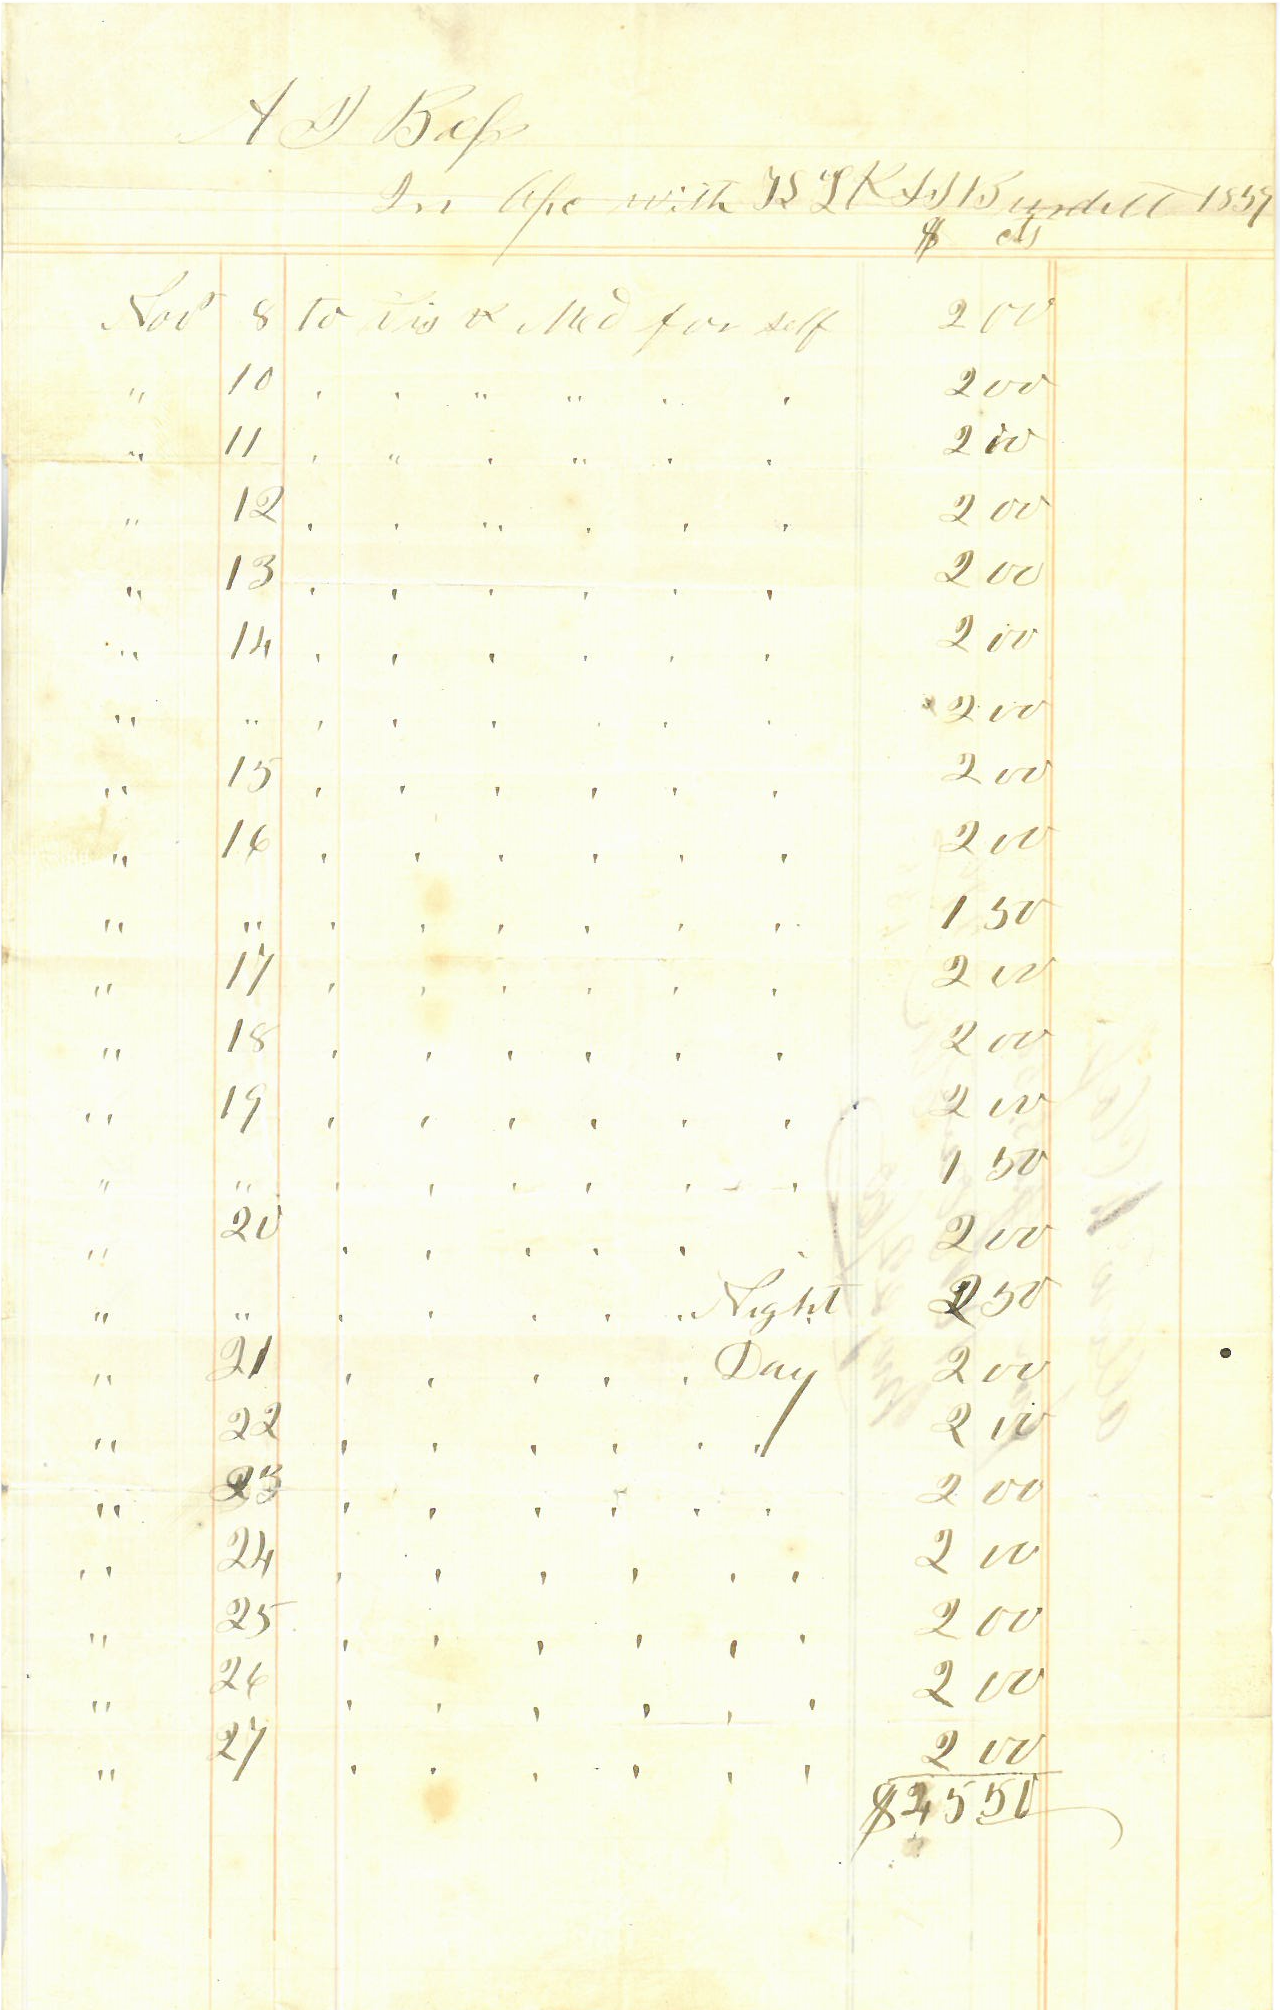 A D Bass
In Apc with H L & I J Burdett 1857
$ cts
Nov 8 to Vis & Med for self 2 00
" 10 " " " " " " 2 00
" 11 " " " " " " 2 00
" 12 " " " " " " 2 00
" 13 " " " " " " 2 00
" 14 " " " " " " 2 00
" " " " " " " " 2 00
" 15 " " " " " " 2 00
" 16 " " " " " " 2 00
" " " " " " " " 1 50
" 17 " " " " " " 2 00
" 18 " " " " " " 2 00
" 19 " " " " " " 2 00
" " " " " " " " 1 50
" 20 " " " " " " 2 00
" " " " " " " Night 2 50
" 21 " " " " " Day 2 00
" 22 " " " " " " 2 00
" 23 " " " " " " 2 00
" 24 " " " " " " 2 00
" 25 " " " " " " 2 00
" 26 " " " " " " 2 00
" 27 " " " " " " 2 00
$45 50